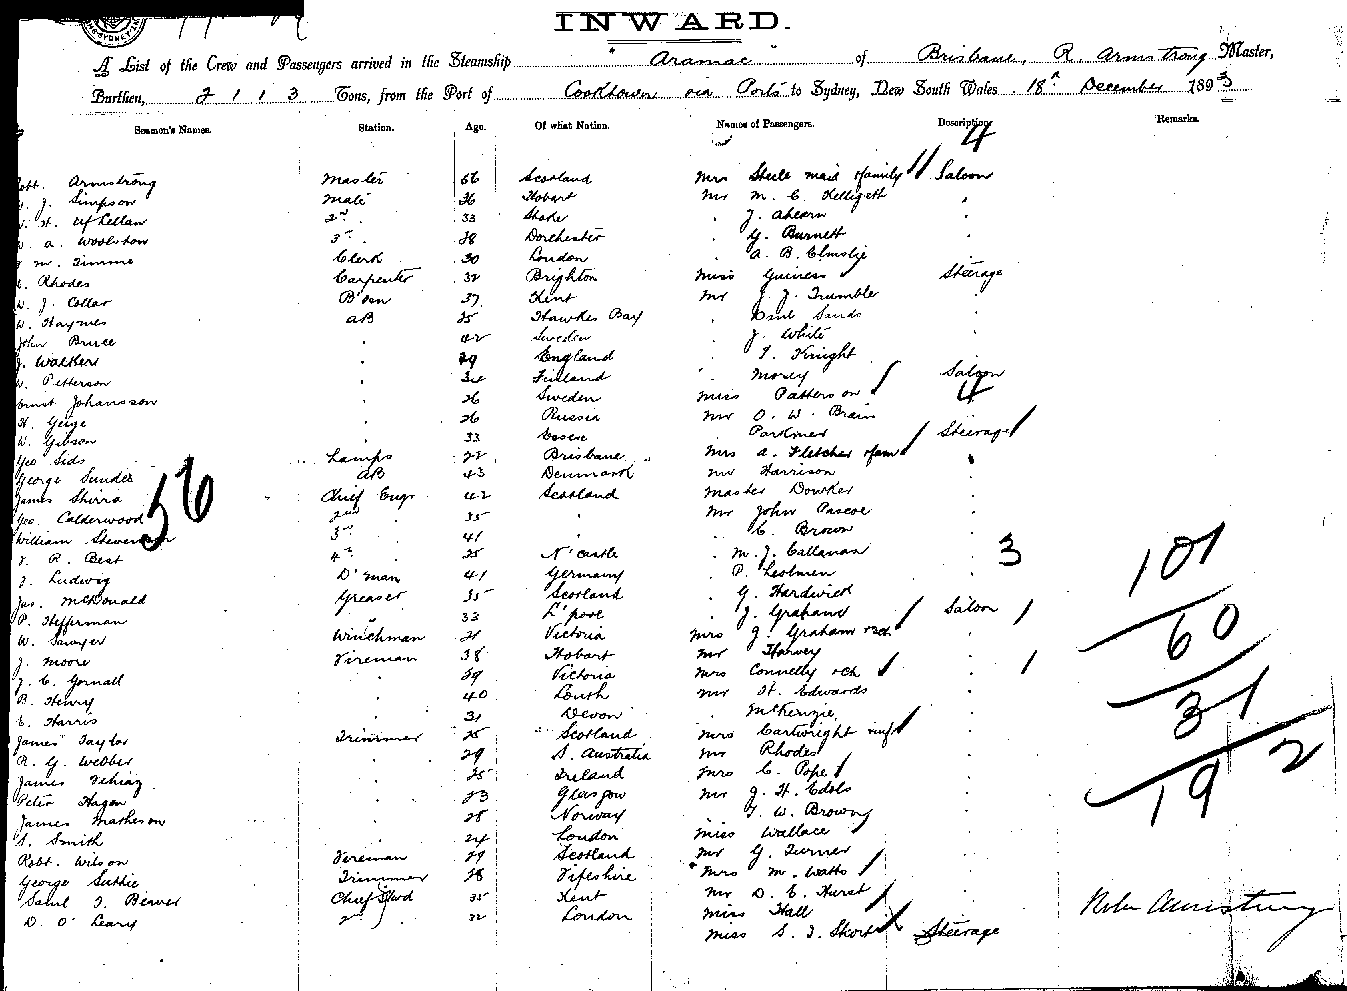 INWARD.
A List of the Crew and Passengers arrived in the Steamship "Aramac" of Brisbane, R. Armstrong Master,
Burthen, 2113 Tons, from the Port of Cooktown via Ports to Sydney, New South Wales 18th December 1893
Seamen's Names. Station. Age. Of what Nation. Names of Passengers. Description Remarks.
4
Robt. Armstrong Master 56 Scotland Mrs Steele maid & family Saloon
J. Simpson Mate 36 Hobart Mr M. C. Kelligeth
H. McLellan 2nd 33 Stoke J. Ahearn
W. A. Woolston 3rd 28 Dorchester G. Burnett
M. Timms Clerk 30 London A. B. Elmslie
Rhodes Carpenter 32 Brighton Miss Guiness Steerage
W. J. Collar B'osn 37 Kent Mr J. J. Trumble
W. Haynes AB 25 Hawkes Bay Emil Sands
John Bruce 42 Sweden J. White
J. Walker 29 England J. Knight
W. Petterson 34 Finland Morey Saloon
Ernst Johansson 26 Sweden Miss Patterson 4
H. Geige 26 Russia Mr O. W. Brain
W. Gibson 33 Essex Parkmer Steerage
Geo Sids Lamps 22 Brisbane Mrs A. Fletcher & fam
George Sunder AB 43 Denmark Mr Harrison
James Shirra Chief Engr 42 Scotland Master Dowker
Geo. Calderwood 2nd 35 Mr John Pascoe
56
William Stevenson 3rd 41 C. Brown
J. R. Best 4th 25 N'castle M. J. Callanan 3
J. Ludwig D'man 41 Germany P. Leolmen
Jas. McDonald Greaser 35 Scotland G. Hardwick
P. Hefferman 33 L'pool J. Graham Saloon
W. Sawyer Winchman 21 Victoria Mrs J. Graham & ch
J. Moore Fireman 38 Hobart Mr Harvey
J. C. Gornall 29 Victoria Mrs Connelly & ch
B. Henry 40 Louth Mr H. Edwards
E. Harris 31 Devon McKenzie
James Taylor Trimmer 25 Scotland Mrs Cartwright inft
R. G. Webber 29 S. Australia Mr Rhodes
James Fehiag 25 Ireland Mrs C. Pope
Peter Hagen 23 Glasgow Mr J. H. Edols
James Matheson 28 Norway T. W. Browny
S. Smith 24 London Miss Wallace
Robt. Wilson Fireman 29 Scotland Mr G. Turner
George Suttie Trimmer 28 Fifeshire Mrs M. Watts
Saml J. Beaver Chief Stwd 35 Kent Mr D. E. Hurst
D. O'Leary 2nd 32 London Miss Hall
Miss S. J. Short Steerage
101
60
31
19 2
Robt Armstrong